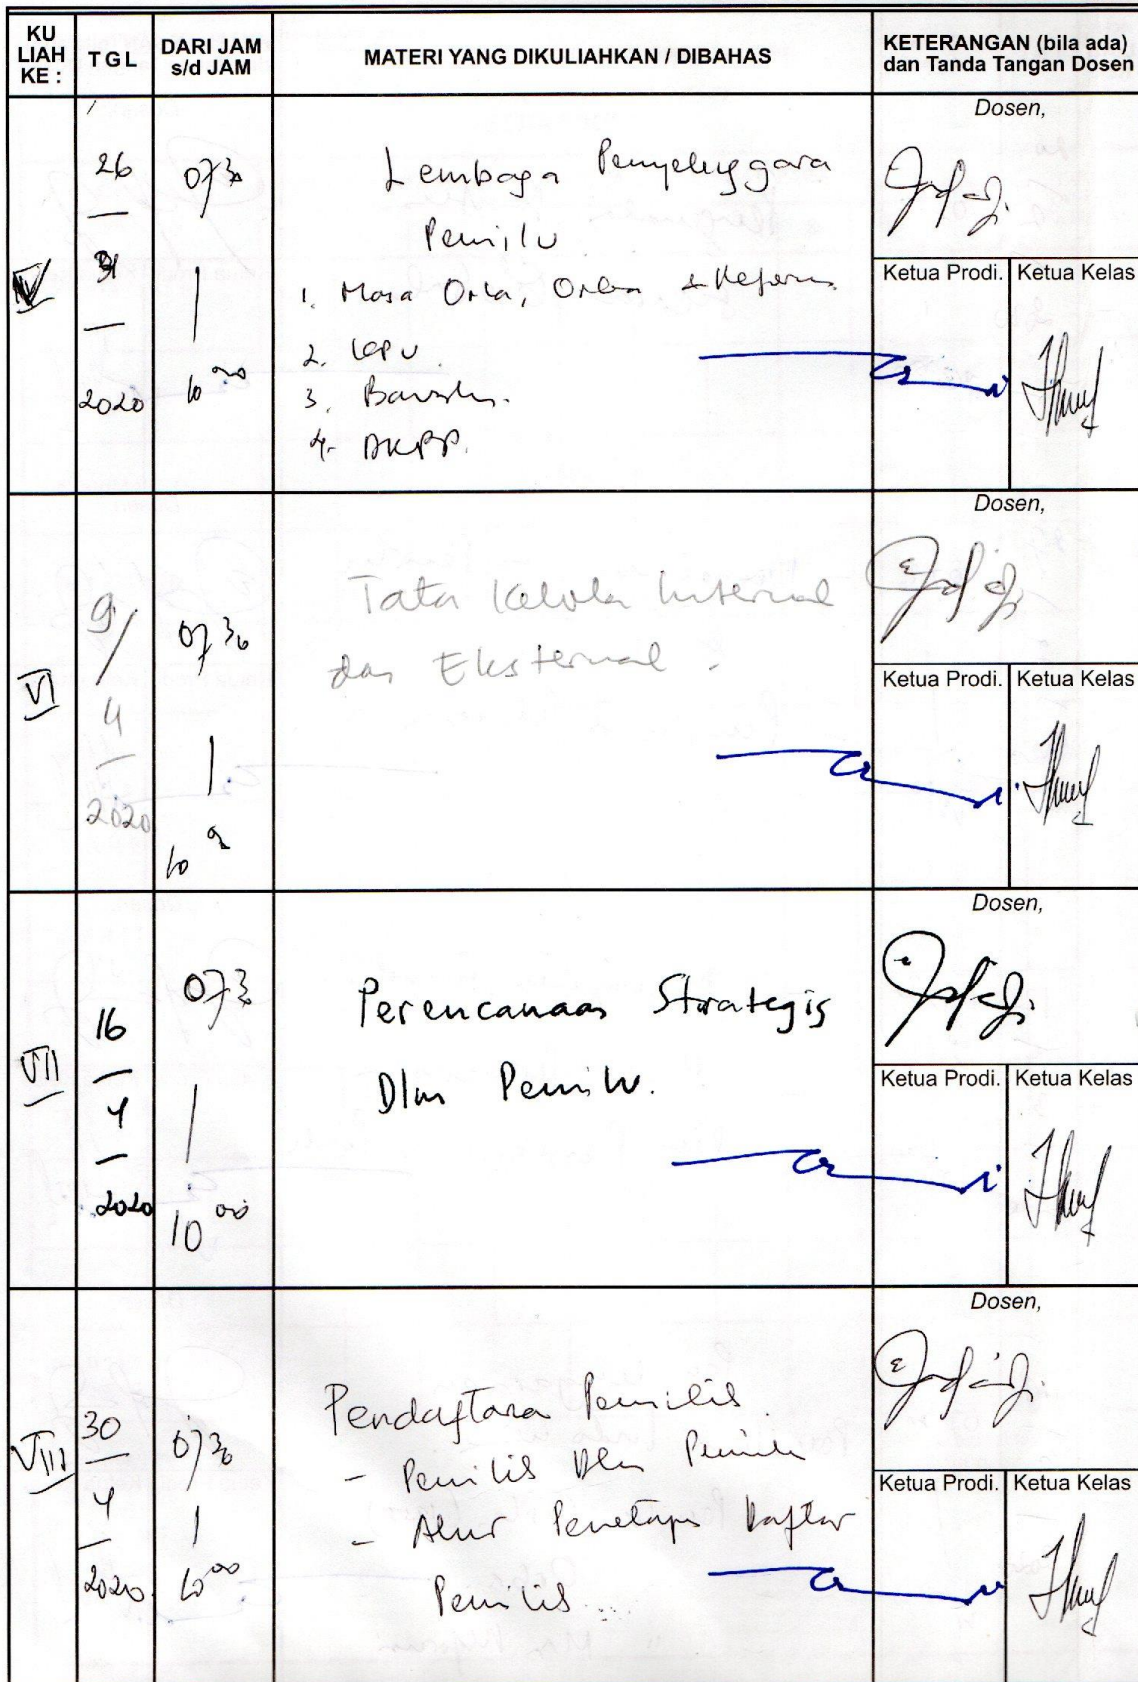 KU LIAH KE :
TGL
DARI JAM s/d JAM
MATERI YANG DIKULIAHKAN / DIBAHAS
KETERANGAN (bila ada) dan Tanda Tangan Dosen
26
—
2020
07 30
|
10 00
Lembaga Penyelenggara
Pemilu
1. Masa Orla, Orba & Reformasi
2. KPU
3. Bawaslu.
4. DKPP.
Dosen,
Ketua Prodi.
Ketua Kelas
VI
9/
4
—
2020
07 30
|
10
Tata Kelola Internal
dan Eksternal.
Dosen,
Ketua Prodi.
Ketua Kelas
VII
16
—
4
—
2020
07 30
|
10 00
Perencanaan Strategis
Dlm Pemilu.
Dosen,
Ketua Prodi.
Ketua Kelas
VIII
30
—
4
—
2020
07 30
|
10 00
Pendaftaran Pemilih
- Pemilih Dlm Pemilu
- Alur Penetapan Daftar
Pemilih
Dosen,
Ketua Prodi.
Ketua Kelas